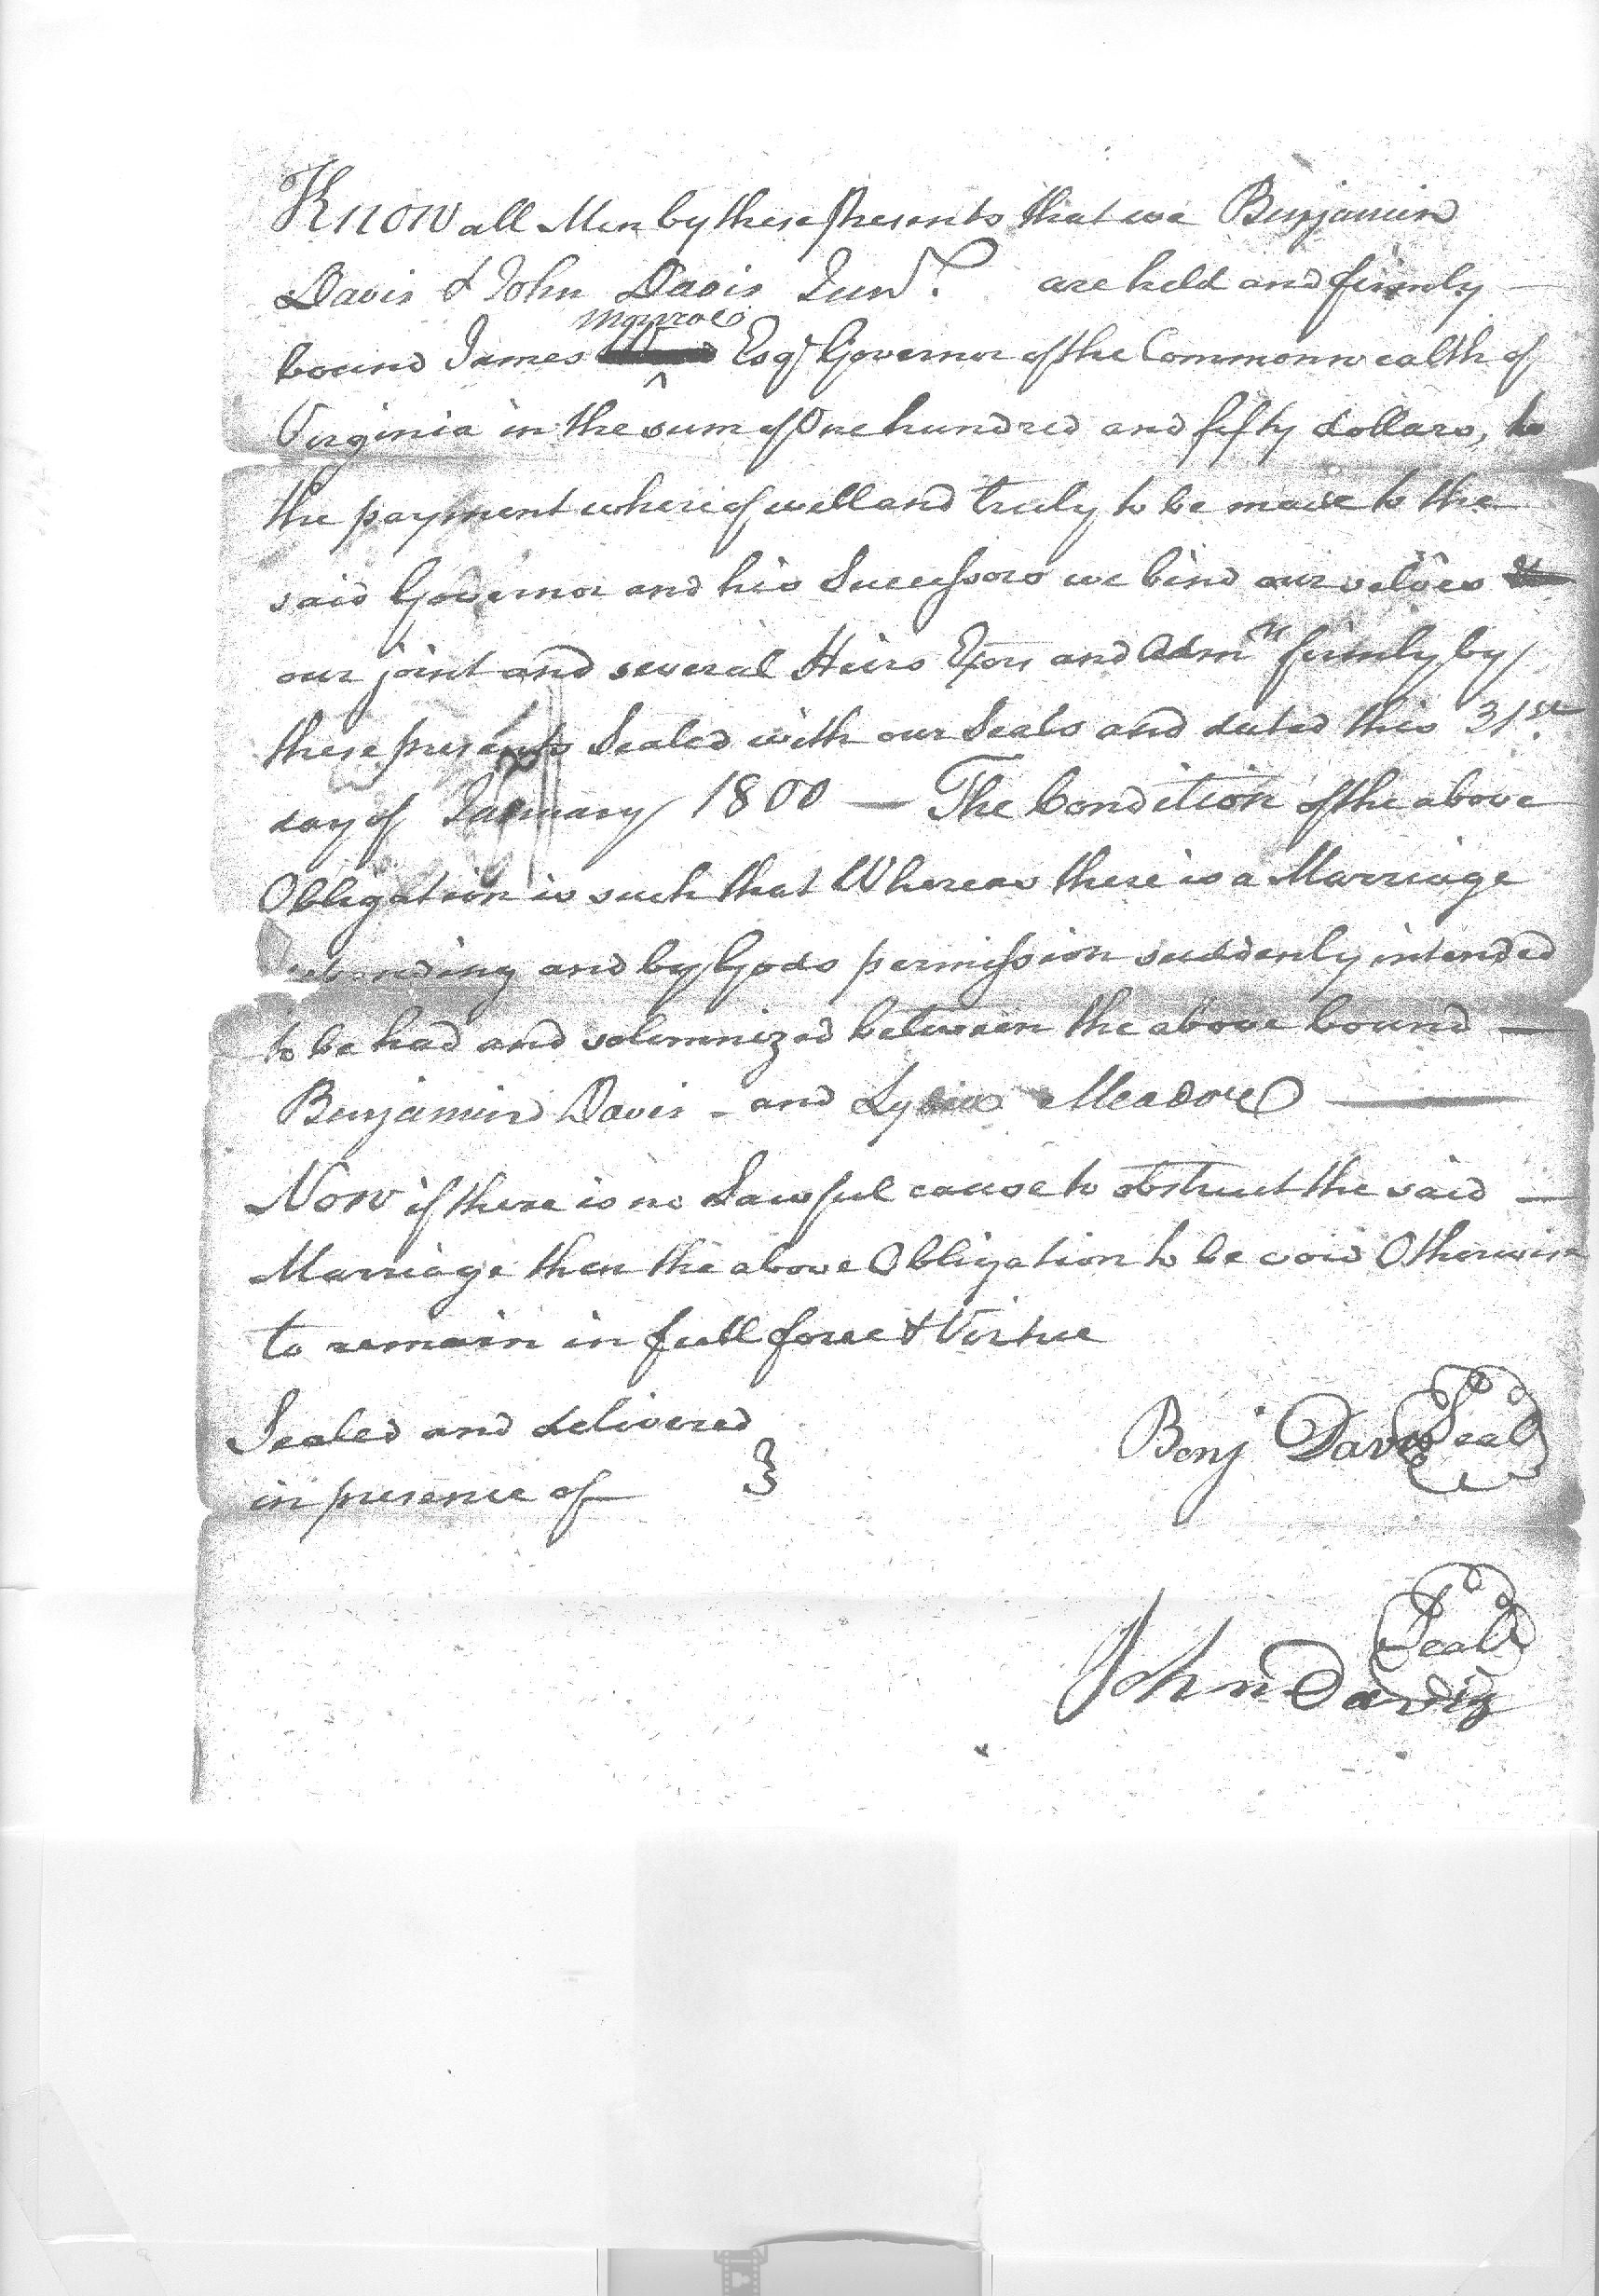 Know all Men by these presents that we Benjamin
Davis & John Davis Junr. are held and firmly
Monroe
bound James Esqr Governor of the Commonwealth of
Virginia in the sum of One hundred and fifty dollars, to
the payment whereof well and truly to be made to the
said Governor and his Successors we bind ourselves
our joint and several Heirs Exors and Admrs firmly by
these presents Sealed with our Seals and dated this 31st.
day of January 1800 — The Condition of the above
Obligation is such that Whereas there is a Marriage
and by Gods permission suddenly intended
to be had and solemnized between the above bound —
Benjamin Davis - and Lydia Meador —
Now if there is no Lawful cause to obstruct the said —
Marriage then the above Obligation to be void Otherwise
to remain in full force & Virtue
Sealed and delivered
in presence of }
Benj Davis Seal
Seal
John Davis